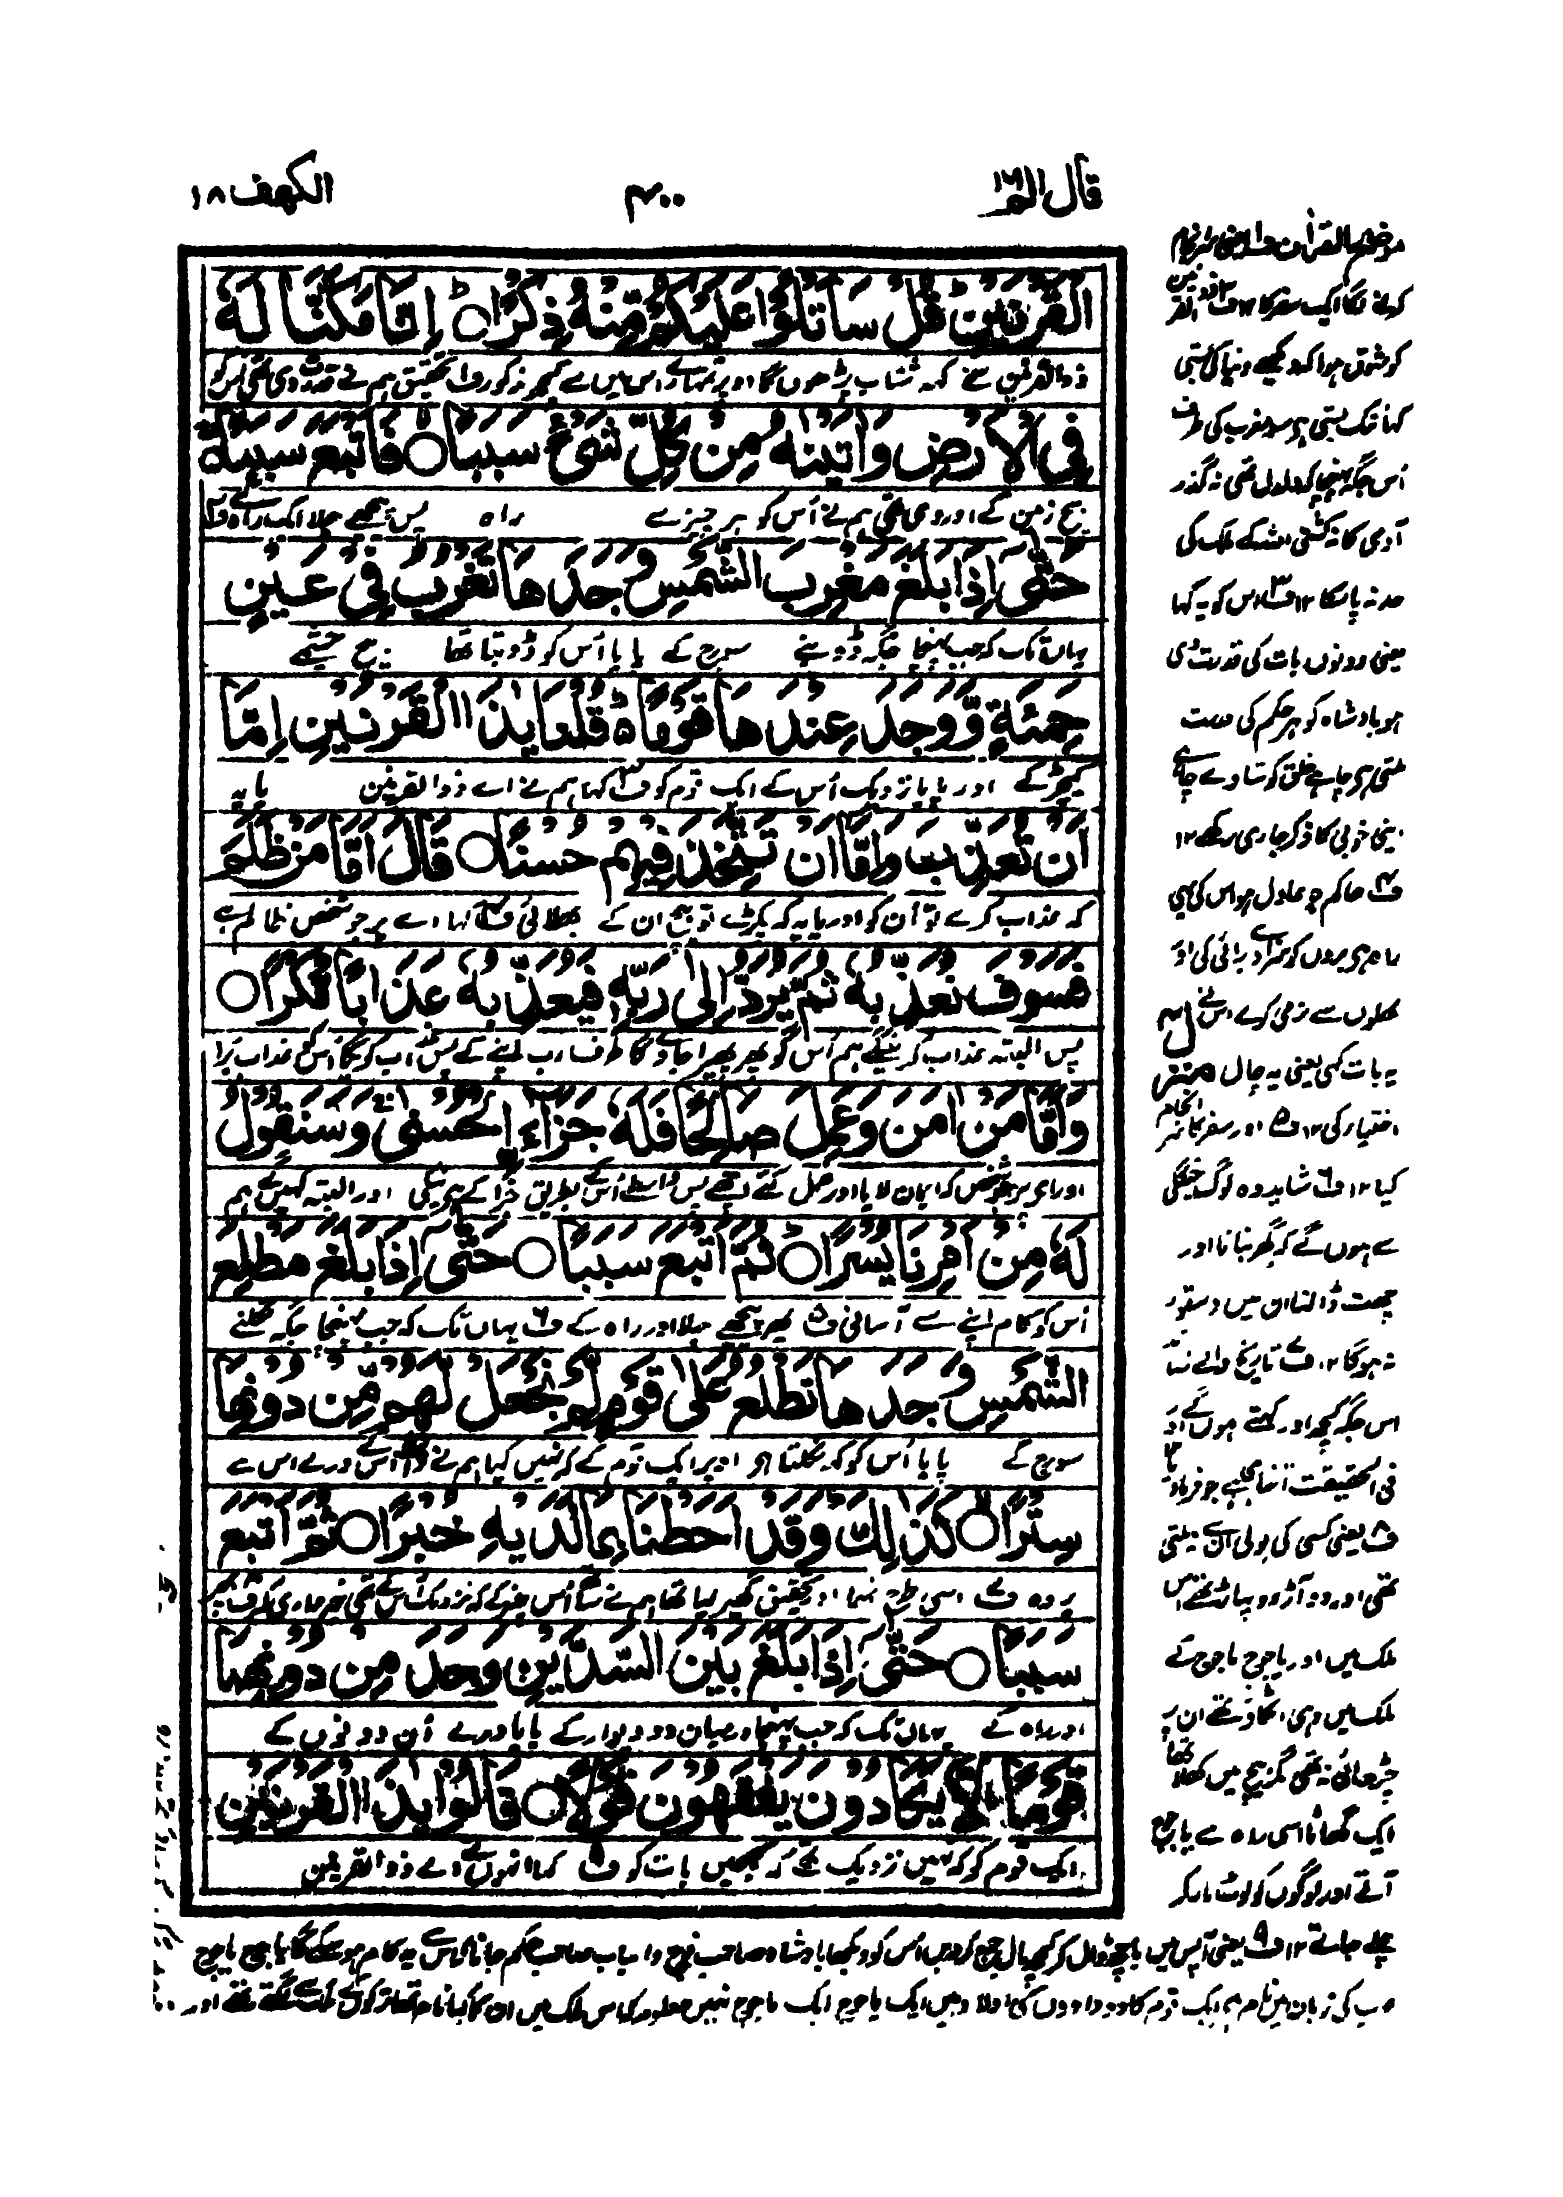 قال الم ١٦
٣٠٠
الكهف ١٨
الْقَرْنَيْنِ ؕ قُلْ سَاَتْلُوْا عَلَيْكُمْ مِّنْهُ ذِكْرًا ؕ○ اِنَّا مَكَّنَّا لَهٗ
ذوالقرنین سے کہہ شتاب پڑھوں گا اوپر تمہارے اس میں سے کچھ مذکور ف۱ تحقیق ہم نے قدرت دی تھی اس کو
فِي الْاَرْضِ وَاٰتَيْنٰهُ مِنْ كُلِّ شَيْءٍ سَبَبًا ○ فَاَتْبَعَ سَبَبًا ○
بیچ زمین کے اور دی تھی ہم نے اُس کو ہر چیز سے راہ پس پیچھے چلا ایک راہ کے
حَتّٰٓى اِذَا بَلَغَ مَغْرِبَ الشَّمْسِ وَجَدَهَا تَغْرُبُ فِيْ عَيْنٍ
یہاں تک کہ جب پہنچا جگہ ڈوبنے سورج کے پایا اُس کو ڈوبتا تھا بیچ چشمے
حَمِئَةٍ وَّوَجَدَ عِنْدَهَا قَوْمًا ؕ قُلْنَا يٰذَا الْقَرْنَيْنِ اِمَّآ
کیچڑ کے اور پایا نزدیک اُس کے ایک قوم کو ف۳ کہا ہم نے اے ذوالقرنین یا یہ
اَنْ تُعَذِّبَ وَاِمَّآ اَنْ تَتَّخِذَ فِيْهِمْ حُسْنًا ○ قَالَ اَمَّا مَنْ ظَلَمَ
کہ عذاب کرے تو اُن کو اور یا یہ کہ پکڑے تو بیچ ان کے بھلائی ف۴ کہا اے پر جو شخص ظالم ہے
فَسَوْفَ نُعَذِّبُهٗ ثُمَّ يُرَدُّ اِلٰى رَبِّهٖ فَيُعَذِّبُهٗ عَذَابًا نُّكْرًا ○
پس البتہ عذاب کرینگے ہم اُس کو پھر پھیرا جاوے گا طرف رب اپنے کے پس عذاب کریگا اُس کو عذاب بُرا
وَاَمَّا مَنْ اٰمَنَ وَعَمِلَ صَالِحًا فَلَهٗ جَزَآءَ ِۨالْحُسْنٰى وَسَنَقُوْلُ
اور اے پر جو شخص کہ ایمان لایا اور عمل کئے اچھے پس واسطے اُس کے بطریق جزا کے ہے نیکی اور البتہ کہیں گے ہم
لَهٗ مِنْ اَمْرِنَا يُسْرًا ؕ○ ثُمَّ اَتْبَعَ سَبَبًا ○ حَتّٰٓى اِذَا بَلَغَ مَطْلِعَ
اُس کو کام اپنے سے آسانی ف۵ پھر پیچھے چلا اور راہ کے ف۶ یہاں تک کہ جب پہنچا جگہ نکلنے
الشَّمْسِ وَجَدَهَا تَطْلُعُ عَلٰى قَوْمٍ لَّمْ نَجْعَلْ لَّهُمْ مِّنْ دُوْنِهَا
سورج کے پایا اُس کو کہ نکلتا ہے اوپر ایک قوم کے کہ نہیں کیا ہم نے واسطے اُن کے ورے اس سے
سِتْرًا ○ كَذٰلِكَ وَقَدْ اَحَطْنَا بِمَا لَدَيْهِ خُبْرًا ○ ثُمَّ اَتْبَعَ
پردہ ف۷ اسی طرح تھا اور تحقیق گھیر لیا تھا ہم نے ساتھ اُس چیز کے کہ نزدیک اُس کے تھی خبرداری کر
سَبَبًا ○ حَتّٰٓى اِذَا بَلَغَ بَيْنَ السَّدَّيْنِ وَجَدَ مِنْ دُوْنِهِمَا
اور راہ کے یہاں تک کہ جب پہنچا درمیان دو دیوار کے پایا ورے اُن دونوں کے
قَوْمًا لَّا يَكَادُوْنَ يَفْقَهُوْنَ قَوْلًا ○ قَالُوْا يٰذَا الْقَرْنَيْنِ
ایک قوم کو کہ نہیں نزدیک تھے کہ سمجھیں بات کو ف۸ کہا انہوں نے اے ذوالقرنین
موضح القرآن ف۱ یعنی سرانجام
کرنے لگا ایک سفر کا ۱۲ ف۲ ذوالقرنین
کو شوق ہوا کہ دیکھے دنیا کی بستی
کہاں تک بستی ہے سو مغرب کی طرف
اُس جگہ پہنچا کہ دلدل تھی نہ گذر
آدمی کا نہ کشتی کا اللہ کے ملک کی
حد نہ پا سکا ۱۲ ف۳ اس کو یہ کہا
یعنی دونوں بات کی قدرت دی
ہر بادشاہ کو ہر حکم کی
ملتی ہے چاہے خلق کو ستاوے چاہے
اپنی خوبی کا ذکر جاری رکھے ۱۲
ف۴ حاکم جو عادل ہو اس کی یہی
راہ ہے بروں کو سزا دے برائی کی اور
بھلوں سے نرمی کرے اس نے
یہ بات کہی یعنی یہ چال
اختیار کی ۱۲ ف۵ اور سفر کا سرانجام
کیا ۱۲ ف۶ شاید وہ لوگ جنگلی
سے ہوں گے کہ گھر بنانا اور
چھت ڈالنا ان میں دستور
نہ ہوگا ۱۲ ف۷ تاریخ والے شاید
اس جگہ کچھ اور کہتے ہوں گے اور
فی الحقیقت اتنا ہی ہے جو فرمایا
ف۸ یعنی کسی کی بولی ان سے نہ ملتی
تھی اور دو آڑ دو پہاڑ تھے اس
ملک میں اور یاجوج ماجوج کے
ملک میں وہی اٹکاؤ تھے ان پر
چڑھائی نہ تھی مگر بیچ میں کھلا تھا
ایک گھاٹا اسی راہ سے یاجوج
آتے اور لوگوں کو لوٹ مار کر
چلے جاتے ۱۲ ف۹ یعنی آپس میں باچھ ڈال کر کچھ مال جمع کر دیں اُس کو دیکھا بادشاہ صاحب فوج و اسباب صاحب حکم جانا اس سے یہ کام ہو سکے گا یاجوج ماجوج
عرب کی زبان میں نام ہے ایک قوم کا دو دادوں کی اولاد میں ایک یاجوج ایک ماجوج نہیں معلوم کہ اس ملک میں ان کا کیا نام تھا